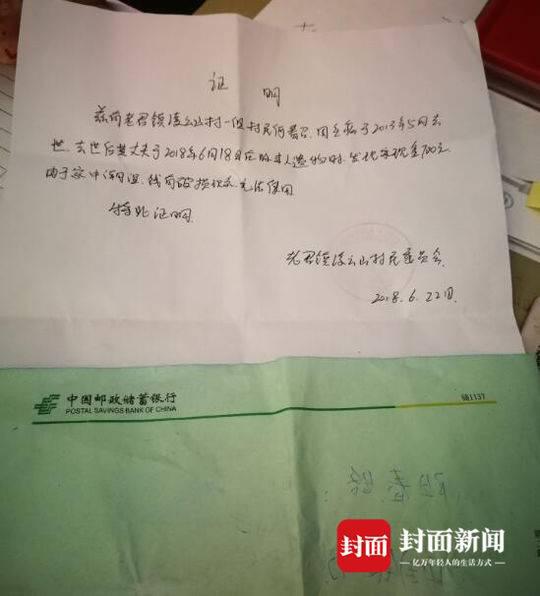 证 明
兹有老君镇凌云山村一组村民何素芬,因重病于2013年5月去
世,去世后其丈夫于2018年6月18日在收本人遗物时,发现有现金700元,
由于家中潮湿,钱有破损现象无法使用
特此证明
老君镇凌云山村民委员会
2018.6.22日
中国邮政储蓄银行
POSTAL SAVINGS BANK OF CHINA
6B1137
封面
封面新闻
—亿万年轻人的生活方式—